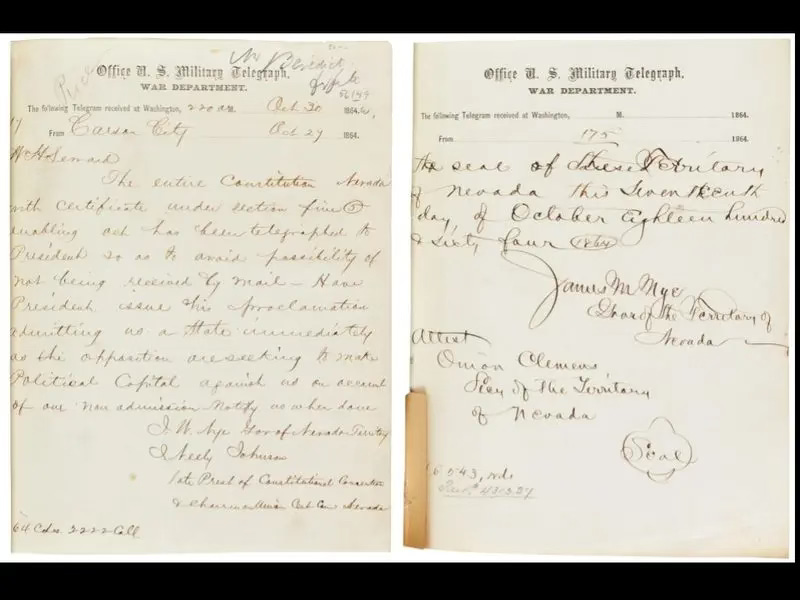 Mr Benedict
56149
Office U. S. Military Telegraph,
WAR DEPARTMENT.
The following Telegram received at Washington, 220 AM. Oct 30 1864.
17 From Carson City Oct 27 1864.
Wm H Seward
The entire Constitution Nevada
with certificate under section five 5
enabling act has been telegraphed to
President so as to avoid possibility of
not being received by mail - Have
President issue his Proclamation
admitting us a State immediately
as the opposition are seeking to make
Political Capital against us on account
of our non admission Notify us when done
J. W. Nye Gov of Nevada Territory
J Neely Johnson
late Prest of Constitutional Convention
& Chairman Union Cent Com Nevada
64 Cds 2222 Coll
Office U. S. Military Telegraph,
WAR DEPARTMENT.
The following Telegram received at Washington, M. 1864.
From 175 1864.
the seal of the Territory
of Nevada this Seventeenth
day of October Eighteen hundred
& sixty four (1864)
James M Nye
Gov of the Territory of
Nevada
Attest
Orion Clemens
Secy of the Territory
of Nevada
Seal
16543, wds
4313.27